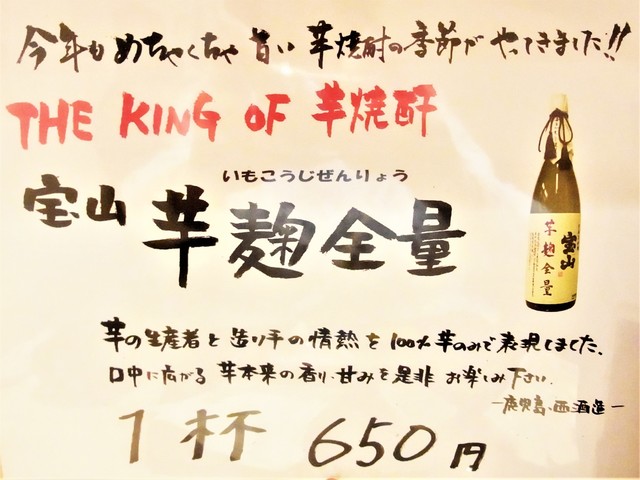 今年もめちゃくちゃ旨い芋焼酎の季節がやってきました!!
THE KING OF 芋焼酎
いもこうじぜんりょう
宝山 芋麹全量
宝山
芋麹全量
芋の生産者と造り手の情熱を100%芋のみで表現しました、
口中に広がる芋本来の香り、甘みを是非お楽しみ下さい.
ー鹿児島・西酒造ー
1杯 650円